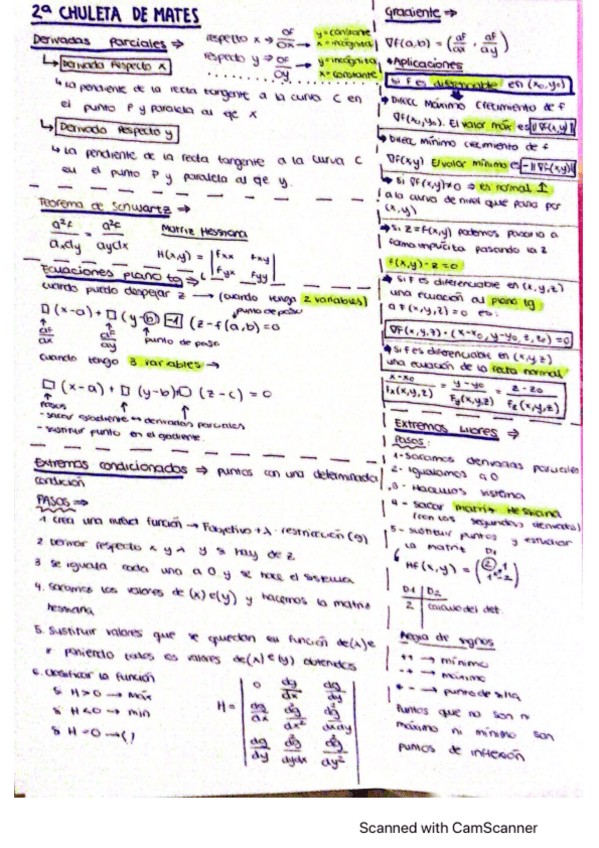 2ª CHULETA DE MATES
Derivadas parciales ⇒ respecto x → ∂F/∂x → y = constante x = incógnita
respecto y → ∂F/∂y → y = incógnita x = constante
↳ Derivada Respecto x
↳ La pendiente de la recta tangente a la curva C en
el punto P y paralela al eje x
↳ Derivada Respecto y
↳ La pendiente de la recta tangente a la curva C
en el punto P y paralela al eje y.
Teorema de Schwartz ⇒
Matriz Hessiana
H(x,y) = | fxx fxy
fyx fyy |
Ecuaciones plano tg ⇒
cuando puedo despejar z → (cuando tengo 2 variables)
punto de paso
□ (x-a) + □ (y-b) -1 (z - f(a,b)) = 0
punto de paso
cuando tengo 3 variables →
□ (x-a) + □ (y-b) + □ (z-c) = 0
Pasos
- sacar gradiente ↔ derivadas parciales
- sustituir punto en el gradiente.
Extremos condicionados ⇒ puntos con una determinada
condición
PASOS ⇒
1 crea una nueva función → F objetivo + λ · restricción (g)
2 Derivar respecto x y λ y si hay de z
3 se iguala cada una a 0 y se hace el sistema
4. sacamos los valores de (x) e (y) y hacemos la matriz
hessiana
5. Sustituir valores que se quedan en función de (λ) e
poniendo todos los valores de (x) e (y) obtenidos
6. clasificar la función
si H > 0 → máx
si H < 0 → min
si H = 0 → ¿!
H =
Gradiente ⇒
∇f(a,b) = (∂F/∂x, ∂F/∂y)
Aplicaciones
Si F es diferenciable en (x₀,y₀)
Direc. Máximo crecimiento de f
∇f(x₀,y₀). El valor máx es ||∇f(x,y)||
Direc mínimo crecimiento de f
∇f(x,y) El valor mínimo es -||∇f(x,y)||
Si ∇f(x,y) ≠ 0 ⇒ es normal ⊥
a la curva de nivel que pasa por
(x,y)
Si z = f(x,y) podemos pasarla a
forma implícita pasando la z
f(x,y) - z = 0
Si F es diferenciable en (x,y,z)
una ecuación al plano tg
a F(x,y,z) = 0 es:
∇F(x,y,z) · (x-x₀, y-y₀, z, z₀) = 0
Si F es diferenciable en (x,y,z)
una ecuación de la recta normal
x-x₀/Fx(x,y,z) = y-y₀/Fy(x,y,z) = z-z₀/Fz(x,y,z)
Extremos Libres ⇒
Pasos:
1- Sacamos derivadas parciales
2- Igualamos a 0
3- Hacemos sistema
4- sacar matriz Hessiana
(con las segundas derivadas)
5- sustituir puntos y estudiar
la matriz D1
Hf(x,y) =
D1 | D2
2 | calculo del det.
Regla de signos
++ → mínimo
-+ → máximo
+- → punto de silla
Puntos que no son ni
máximo ni mínimo son
puntos de inflexión
Scanned with CamScanner